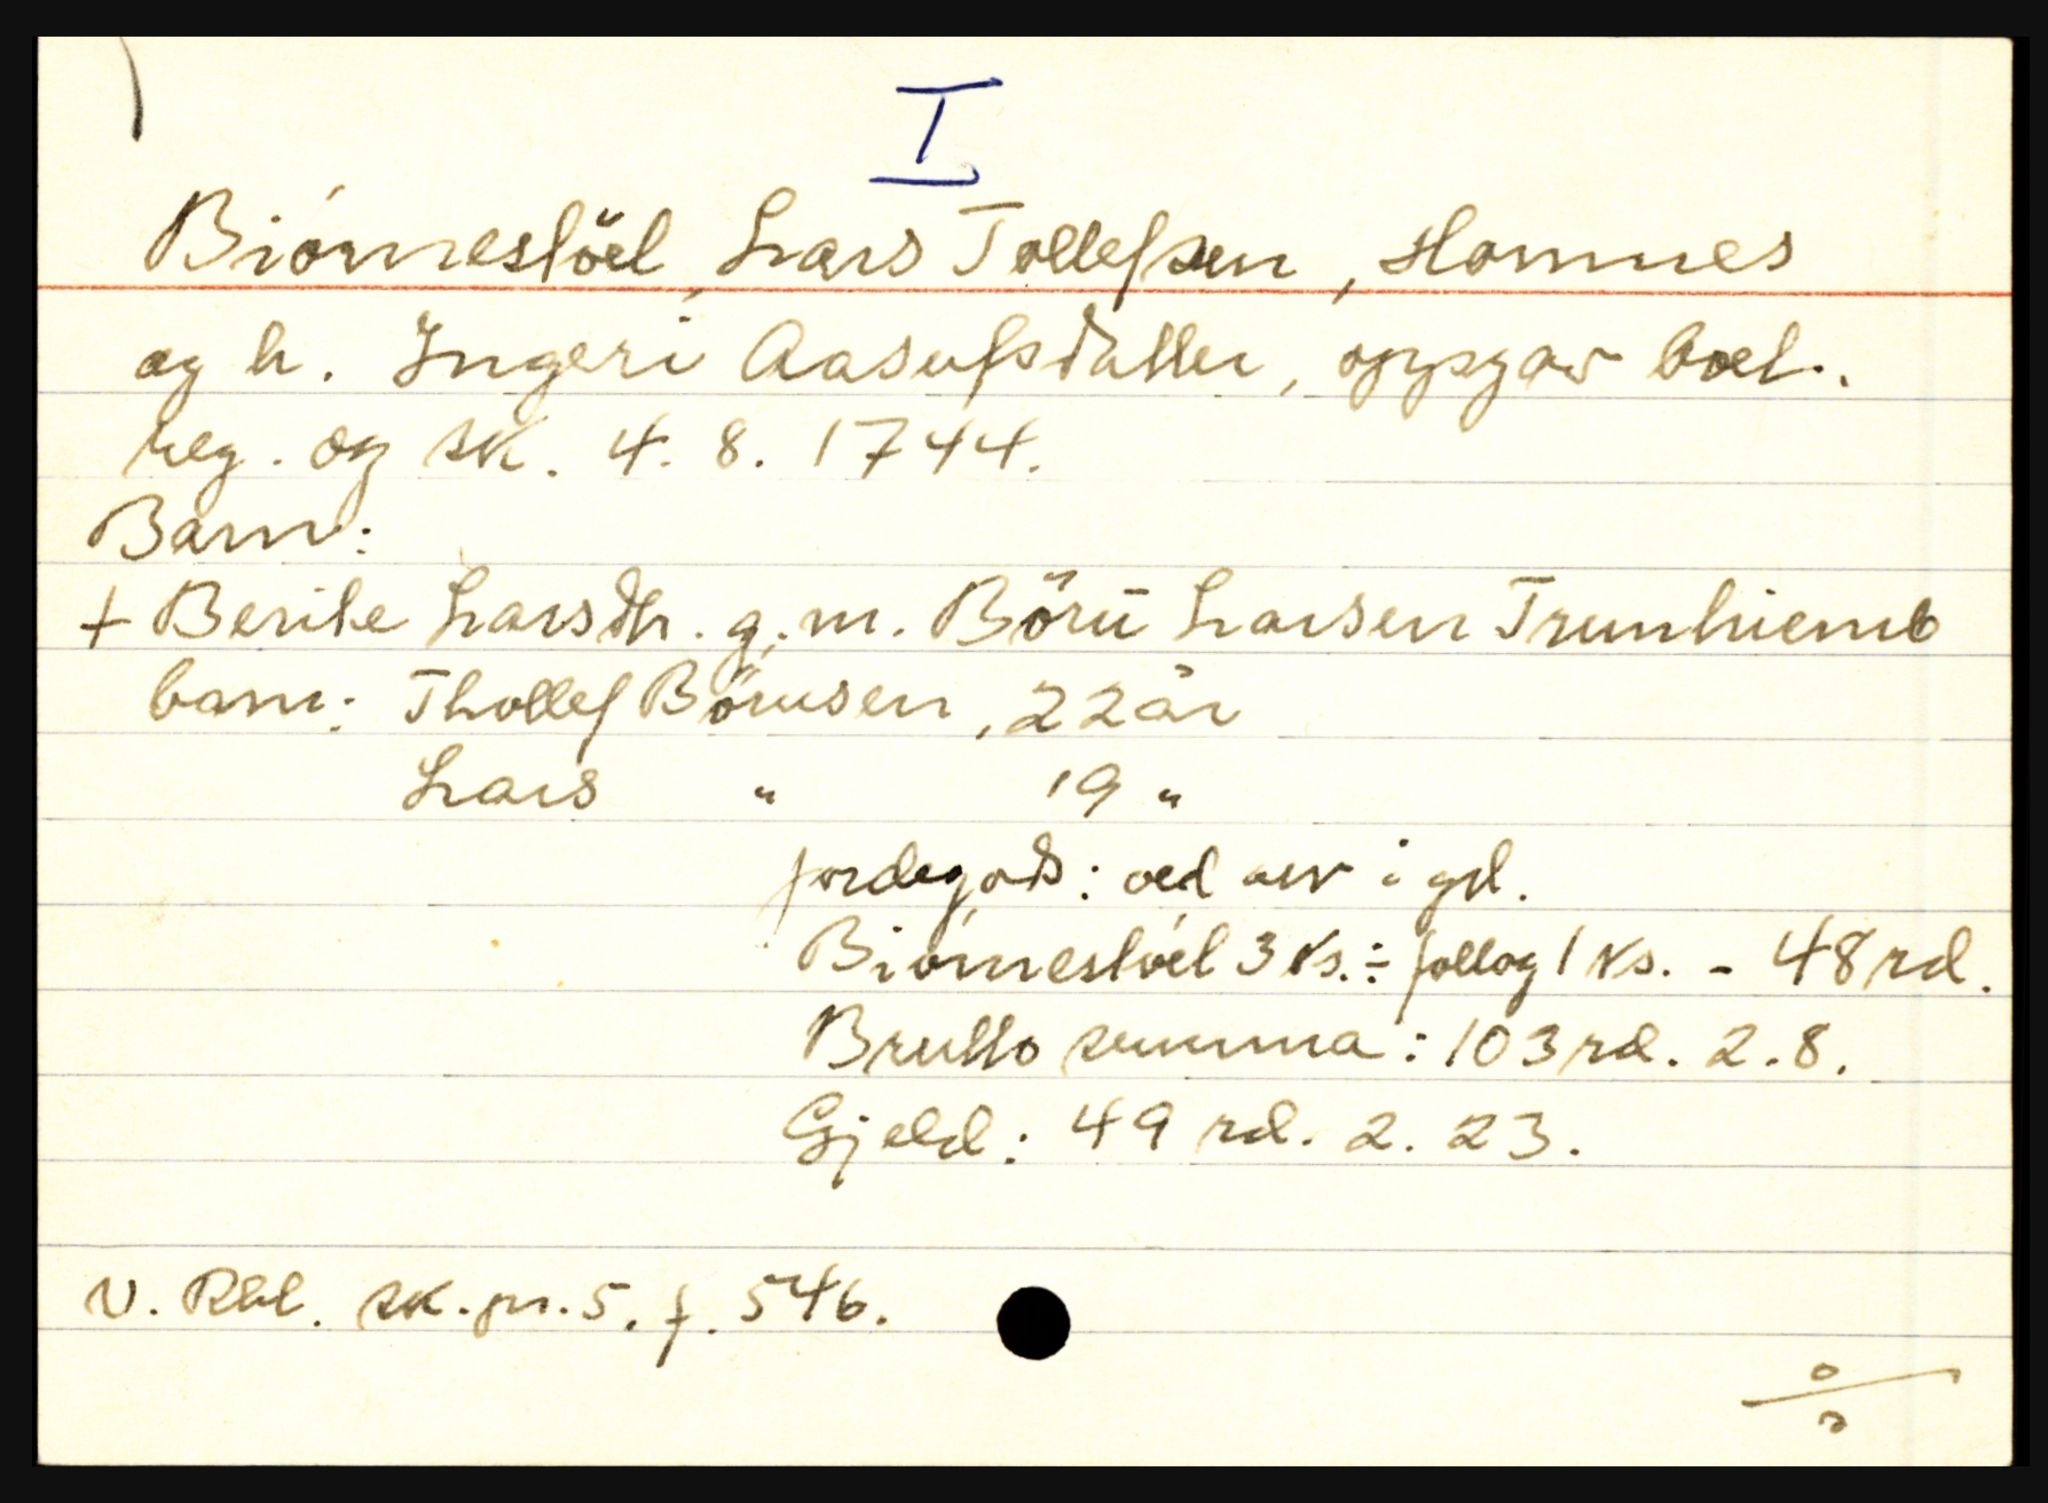 I
Biørnestöel, Lars Tollefsen, Homnes
og h. Ingeri Aasufsdatter, oppgav boet.
reg. og sk. 4. 8. 1744.
Barn:
+ Berite Larsdtr. g. m. Böru Larsen Trunhiemb
barn: Thollef Börusen, 22 år
Lars " 19 "
jordegods: ved arv i gd.
Biørnestöel 3 ks. ÷ follog 1 ks. - 48 rd.
Brutto summa: 103 rd. 2. 8.
Gjeld: 49 rd. 2. 23.
N. Rbl. sk. pr. 5. f. 546.